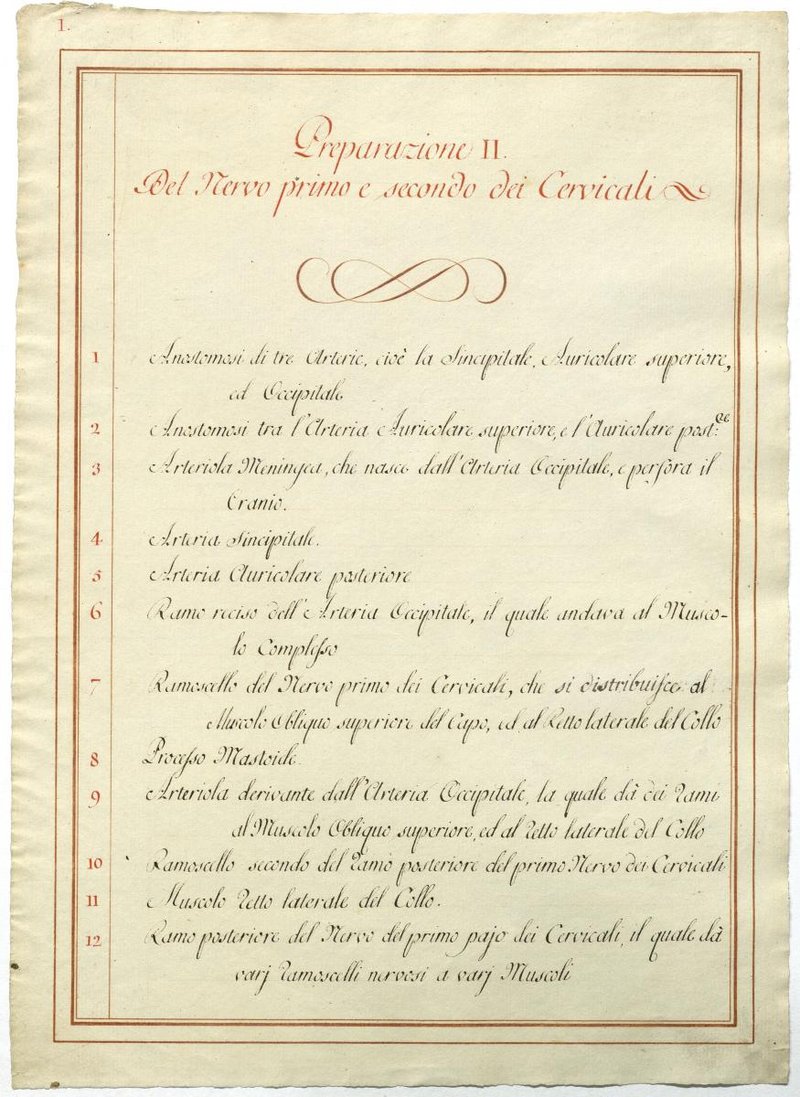 1.
Preparazione II.
Del Nervo primo e secondo dei Cervicali
1 Anostomosi di tre Arterie, cioè la Sincipitale, Auricolare superiore,
ed Occipitale
2 Anostomosi tra l'Arteria Auricolare superiore, e l'Auricolare post.re
3 Arteriola Meningea, che nasce dall'Arteria Occipitale, e perfora il
Cranio.
4 Arteria Sincipitale.
5 Arteria Auricolare posteriore
6 Ramo reciso dell'Arteria Occipitale, il quale andava al Musco-
lo Complesso
7 Ramoscello del Nervo primo dei Cervicali, che si distribuisce al
Muscolo Obliquo superiore del Capo, ed al Retto laterale del Collo
8 Processo Mastoide.
9 Arteriola derivante dall'Arteria Occipitale, la quale dà dei Rami
al Muscolo Obliquo superiore, ed al Retto laterale del Collo
10 Ramoscello secondo del Ramo posteriore del primo Nervo dei Cervicali
11 Muscolo Retto laterale del Collo.
12 Ramo posteriore del Nervo del primo pajo dei Cervicali, il quale dà
varj Ramoscelli nervosi a varj Muscoli